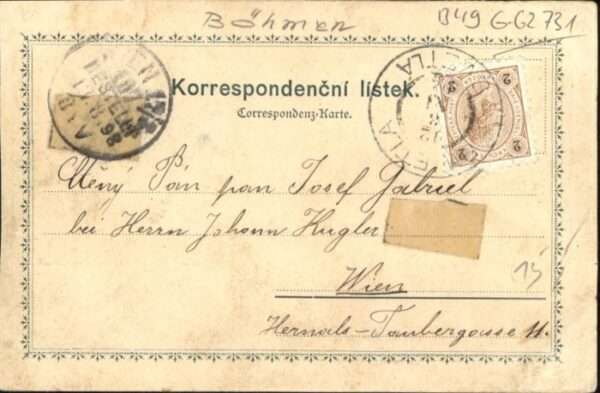 Böhmen
B49 G-G2 731
Korrespondenční lístek.
Correspondenz-Karte.
2
2
2
2
98
Ctěný Pán pan Josef Gabriel
bei Herrn Johann Kugler
Wien
15
Hernals-Taubergasse 11.